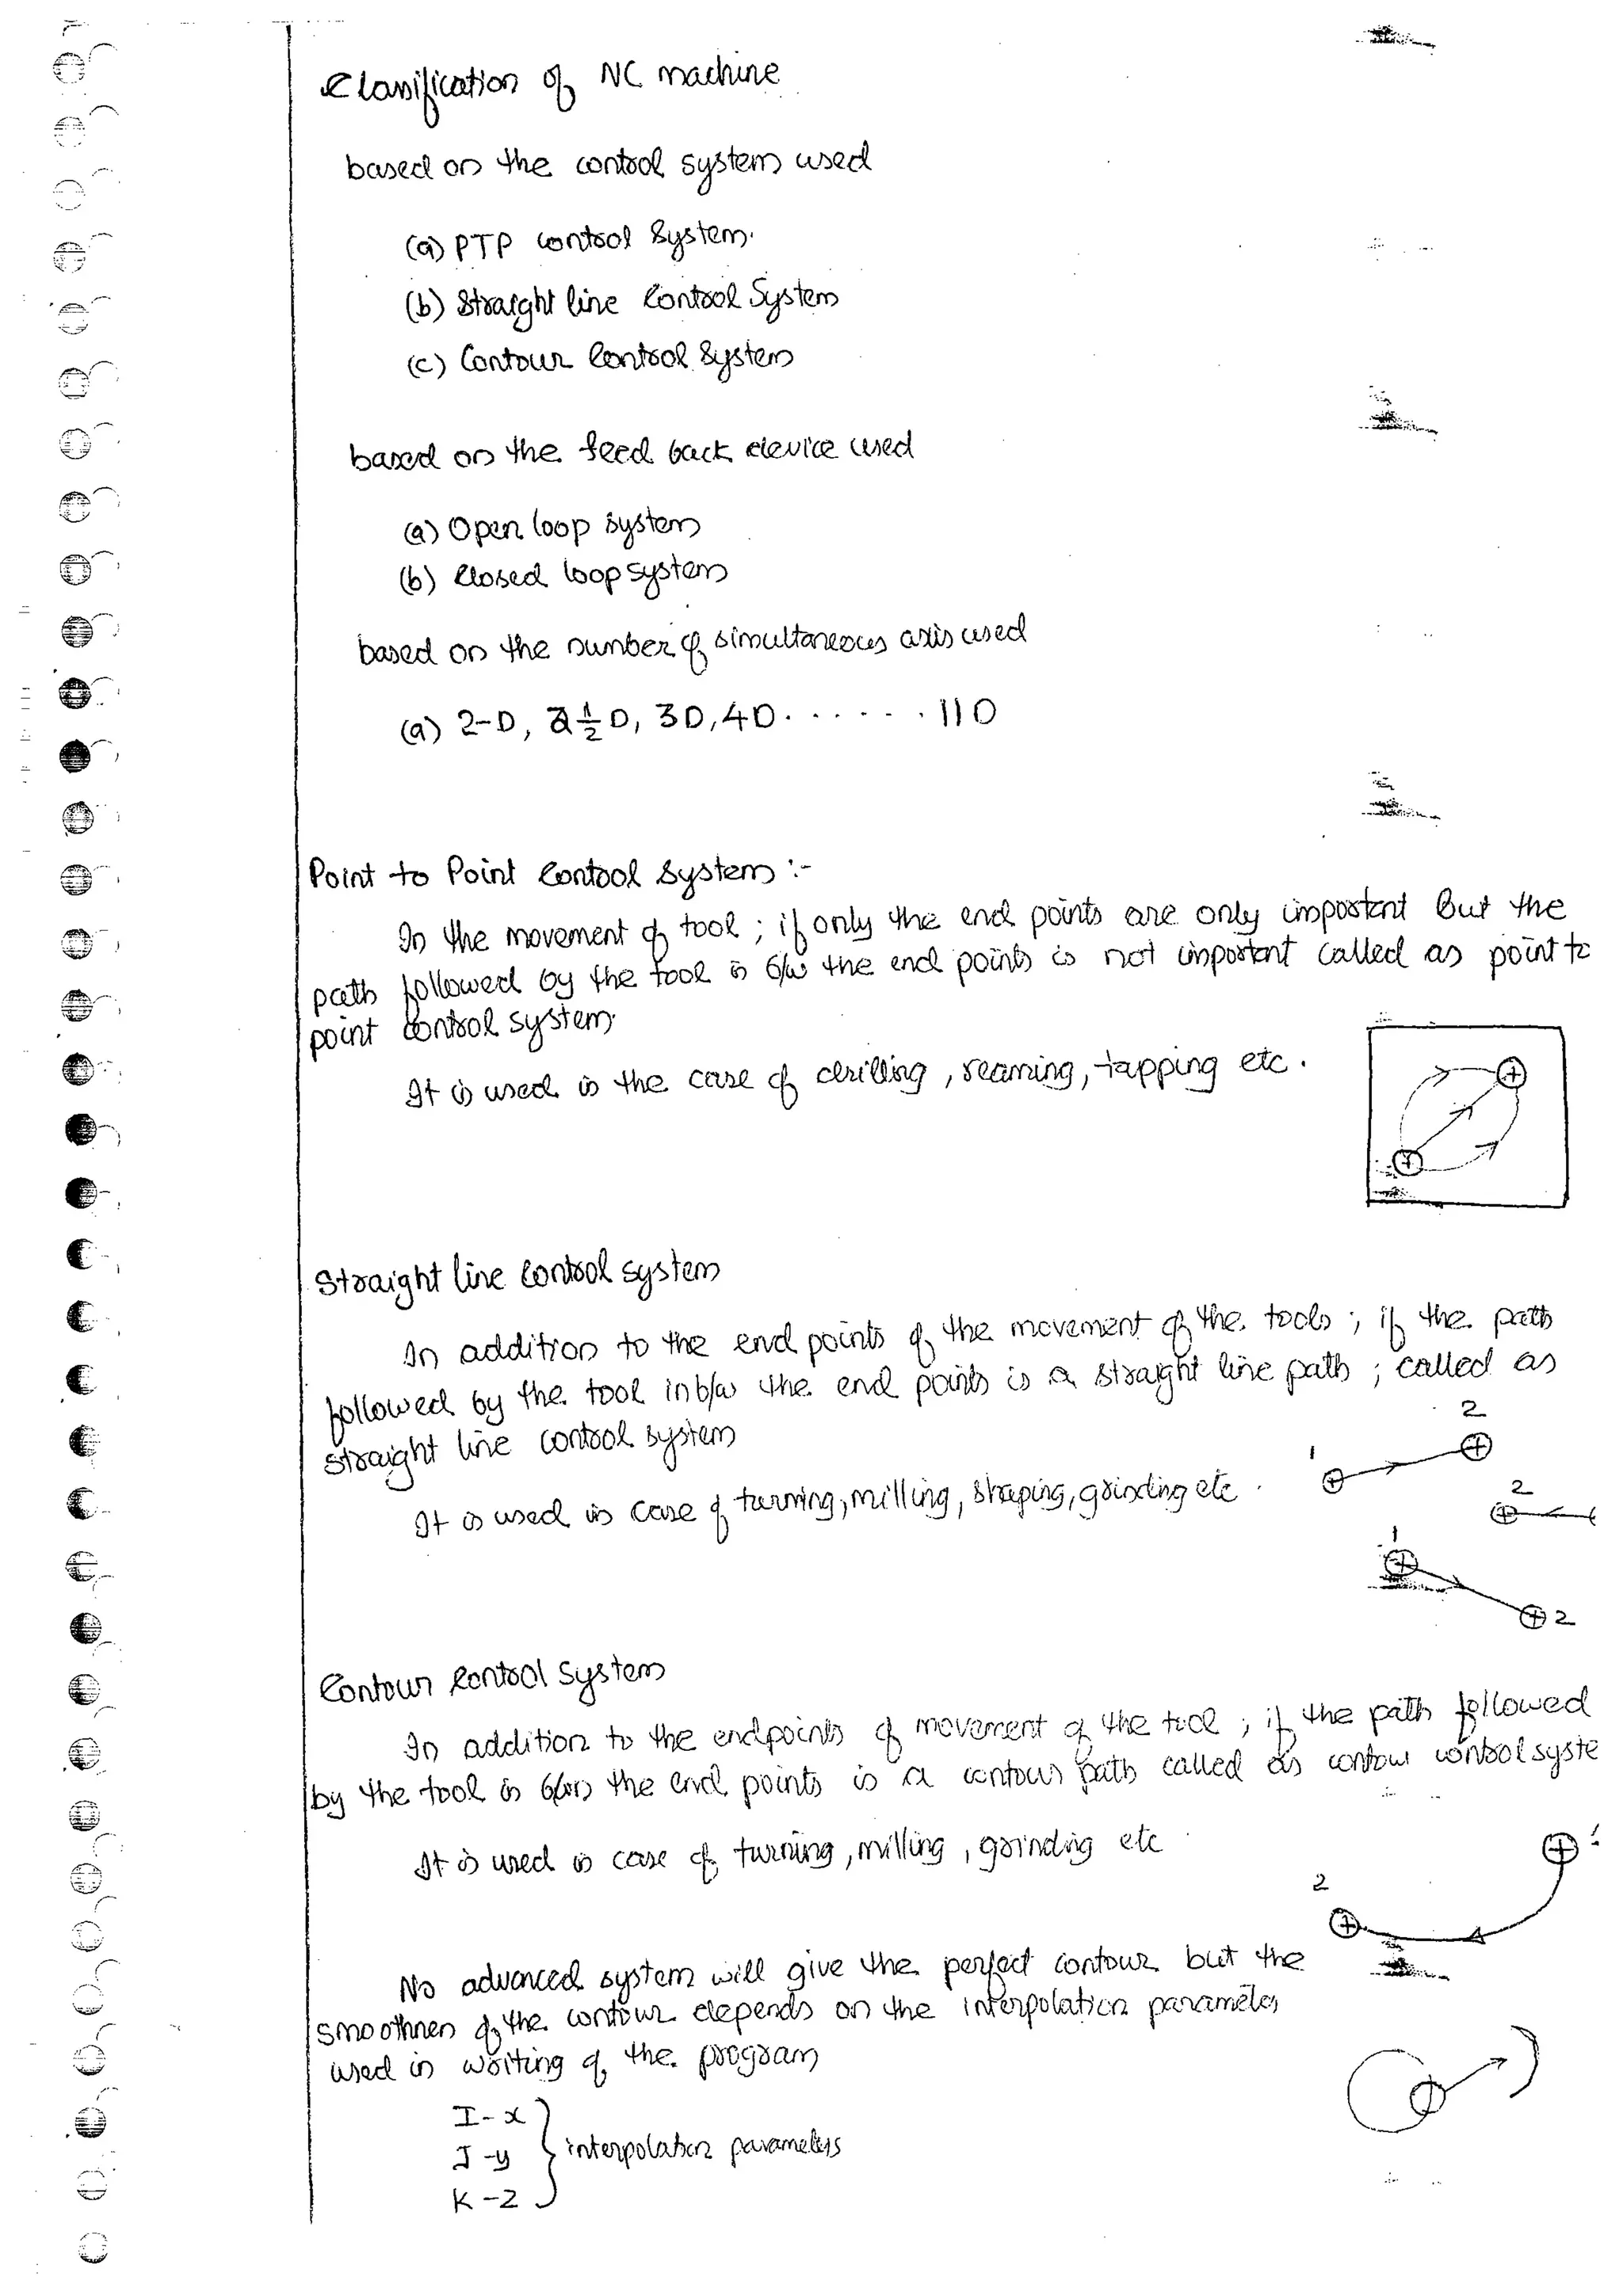 Classification of NC machine
based on the control system used
(a) PTP control system.
(b) Straight line Control System
(c) Contour Control System
based on the feed back device used
(a) Open loop system
(b) Closed loop system
based on the number of simultaneous axis used
(a) 2-D, 2 1/2 D, 3D, 4D. . . . . . . 11D
Point to Point Control System :-
In the movement of tool ; if only the end points are only important but the
path followed by the tool in b/w the end points is not important called as point to
point control system.
It is used in the case of drilling, reaming, tapping etc.
Straight line control system
In addition to the end points of the movement of the tools ; if the path
followed by the tool in b/w the end points is a straight line path ; called as
straight line control system
2
1
It is used in case of turning, milling, shaping, grinding etc.
2
1
2
Contour control system
In addition to the endpoints of movement of the tool ; if the path followed
by the tool in b/w the end points is a contour path called as contour control syste
It is used in case of turning, milling, grinding etc
2
No advanced system will give the perfect contour but the
smoothness of the contour depends on the interpolation parameters
used in writing of the program
I - x
J - y } interpolation parameters
K - z